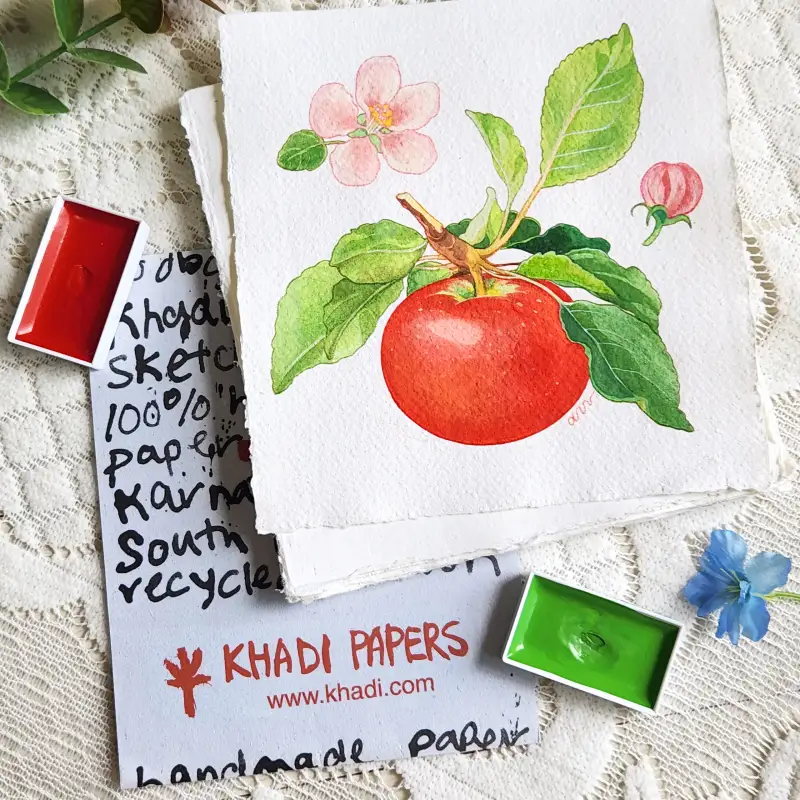 Khadi
sketc
100%
paper
Karna
South
recycle
KHADI PAPERS
www.khadi.com
handmade paper
ann